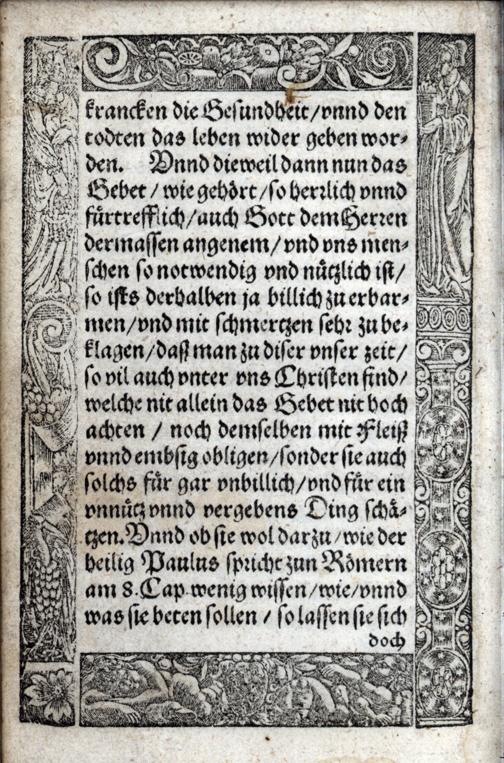 krancken die Gesundheit/vnnd den
todten das leben wider geben wor-
den. Vnnd dieweil dann nun das
Gebet/ wie gehört/so herrlich vnnd
fürtrefflich/auch Gott dem Herren
dermassen angenem/vnd vns men-
schen so notwendig vnd nützlich ist/
so ists derhalben ja billich zu erbar-
men/vnd mit schmertzen sehr zu be-
klagen/daß man zu diser vnser zeit/
so vil auch vnter vns Christen find/
welche nit allein das Gebet nit hoch
achten / noch demselben mit Fleiß
vnnd embsig obligen/sonder sie auch
solchs für gar vnbillich/vnd für ein
vnnütz vnnd vergebens Ding schä-
tzen. Vnnd ob sie wol darzu/wie der
heilig Paulus spricht zun Römern
am 8. Cap. wenig wissen/wie/vnnd
was sie beten sollen / so lassen sie sich
doch